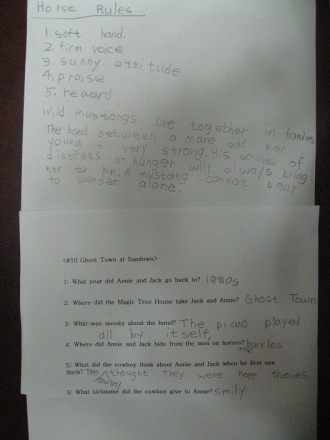 Horse Rules
1. soft hand.
2. firm voice
3. sunny attitude
4. praise
5. reward
Wild mustangs live together in families
The hond between a mare and her
young is very strong. His sounds of
distress or hunger will always bring
her to him. A mustang cannot bear
to wander alone.
<#10 Ghost Town at Sundown>
1: What year did Annie and Jack go back to? 1880s
2: Where did the Magic Tree House take Jack and Annie? Ghost Town
3: What was spooky about the hotel? The piano played
all by itself,
4: Where did Annie and Jack hide from the men on horses? barrles.
5: What did the cowboy think about Annie and Jack when he first saw
them? The cowboy thought They were horse theives.
6: What nickname did the cowboy give to Annie? smily